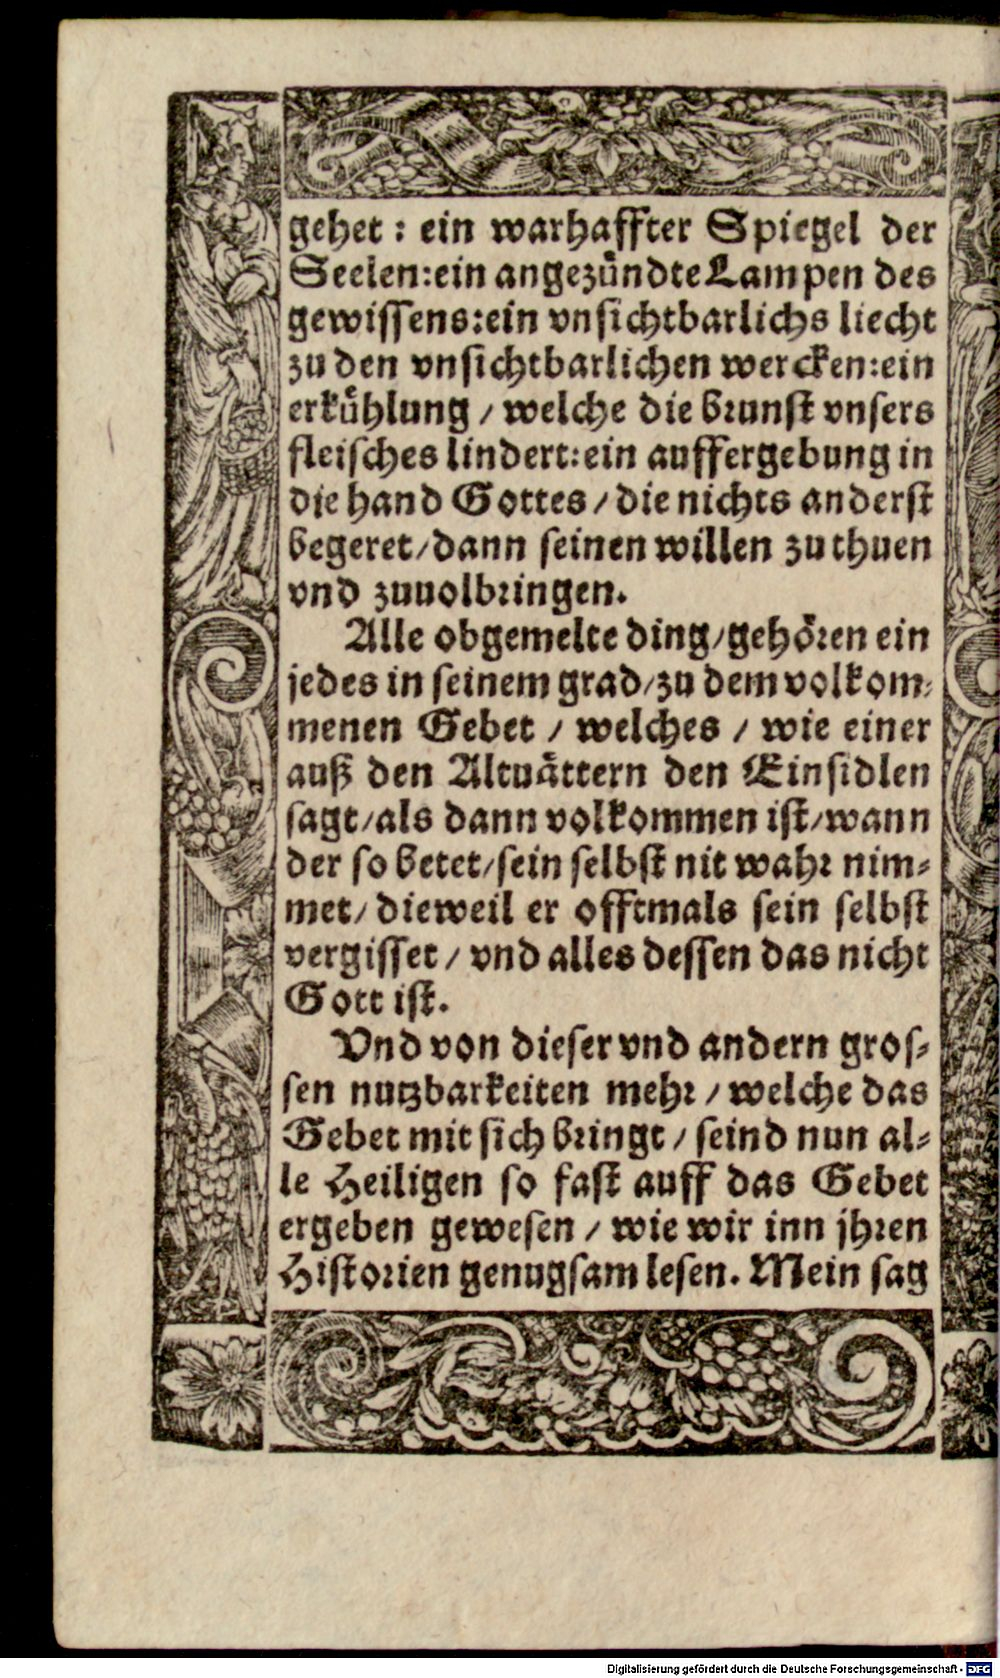 gehet: ein warhaffter Spiegel der
Seelen: ein angezündte Lampen des
gewissens: ein vnsichtbarlichs liecht
zu den vnsichtbarlichen wercken: ein
erkühlung / welche die brunst vnsers
fleisches lindert: ein auffergebung in
die hand Gottes / die nichts anderst
begeret / dann seinen willen zu thuen
vnd zuuolbringen.
Alle obgemelte ding / gehören ein
jedes in seinem grad / zu dem volkom-
menen Gebet / welches / wie einer
auß den Altuättern den Einsidlen
sagt / als dann volkommen ist / wann
der so betet / sein selbst nit wahr nim-
met / dieweil er offtmals sein selbst
vergisset / vnd alles dessen das nicht
Gott ist.
Vnd von dieser vnd andern gros-
sen nutzbarkeiten mehr / welche das
Gebet mit sich bringt / seind nun al-
le Heiligen so fast auff das Gebet
ergeben gewesen / wie wir inn jhren
Historien genugsam lesen. Mein sag
Digitalisierung gefördert durch die Deutsche Forschungsgemeinschaft - DFG